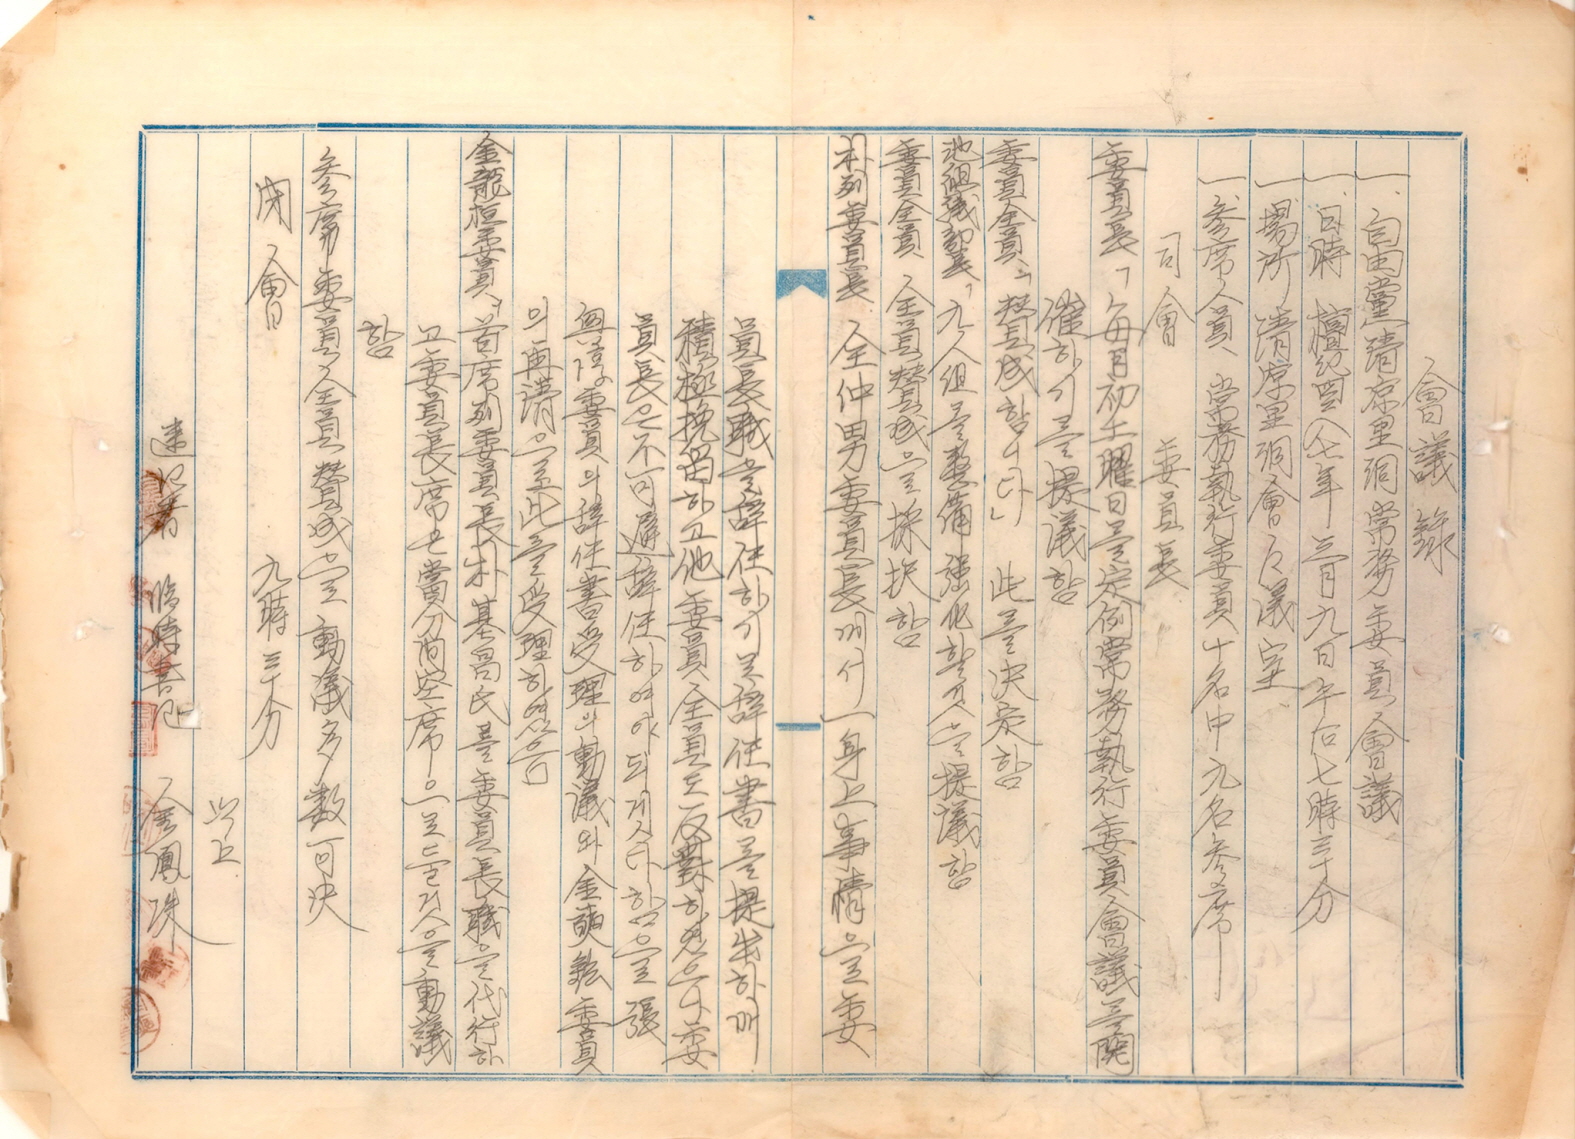 會議錄
一、自由黨淸凉里洞常務委員會議
一、日時 檀紀四二八七年 三月九日午后七時三十分
一、場所 淸凉里洞會會議室
一、參席人員、常務執行委員十名中九名參席
司會 委員長
委員長「每月初土曜日를定例常務執行委員會議를開
催하기를提議함
委員全員「贊成합니다」此를決定함
組織部長「九人組를整備强化할것으로提議함
委員全員 全員贊成으로採決함
朴列委員長 全仲男委員長께서一身上事情으로委
員長職을辭任하기로辭任書를提出하매
積極挽留하고他委員全員도反對하였으나委
員長은不可避辭任하여야되게사다함으로張
委員의辭任書受理의動議와金 委員
의再請으로此를受理하였음
金龍桓委員「首席列委員長朴基 氏를委員長職을代行하
고委員長席은當分間空席으로둘것을動議
함
參席委員全員贊成으로動議多數可決
閉會 九時三十分
以上
速記者 臨時書記 金鳳珠